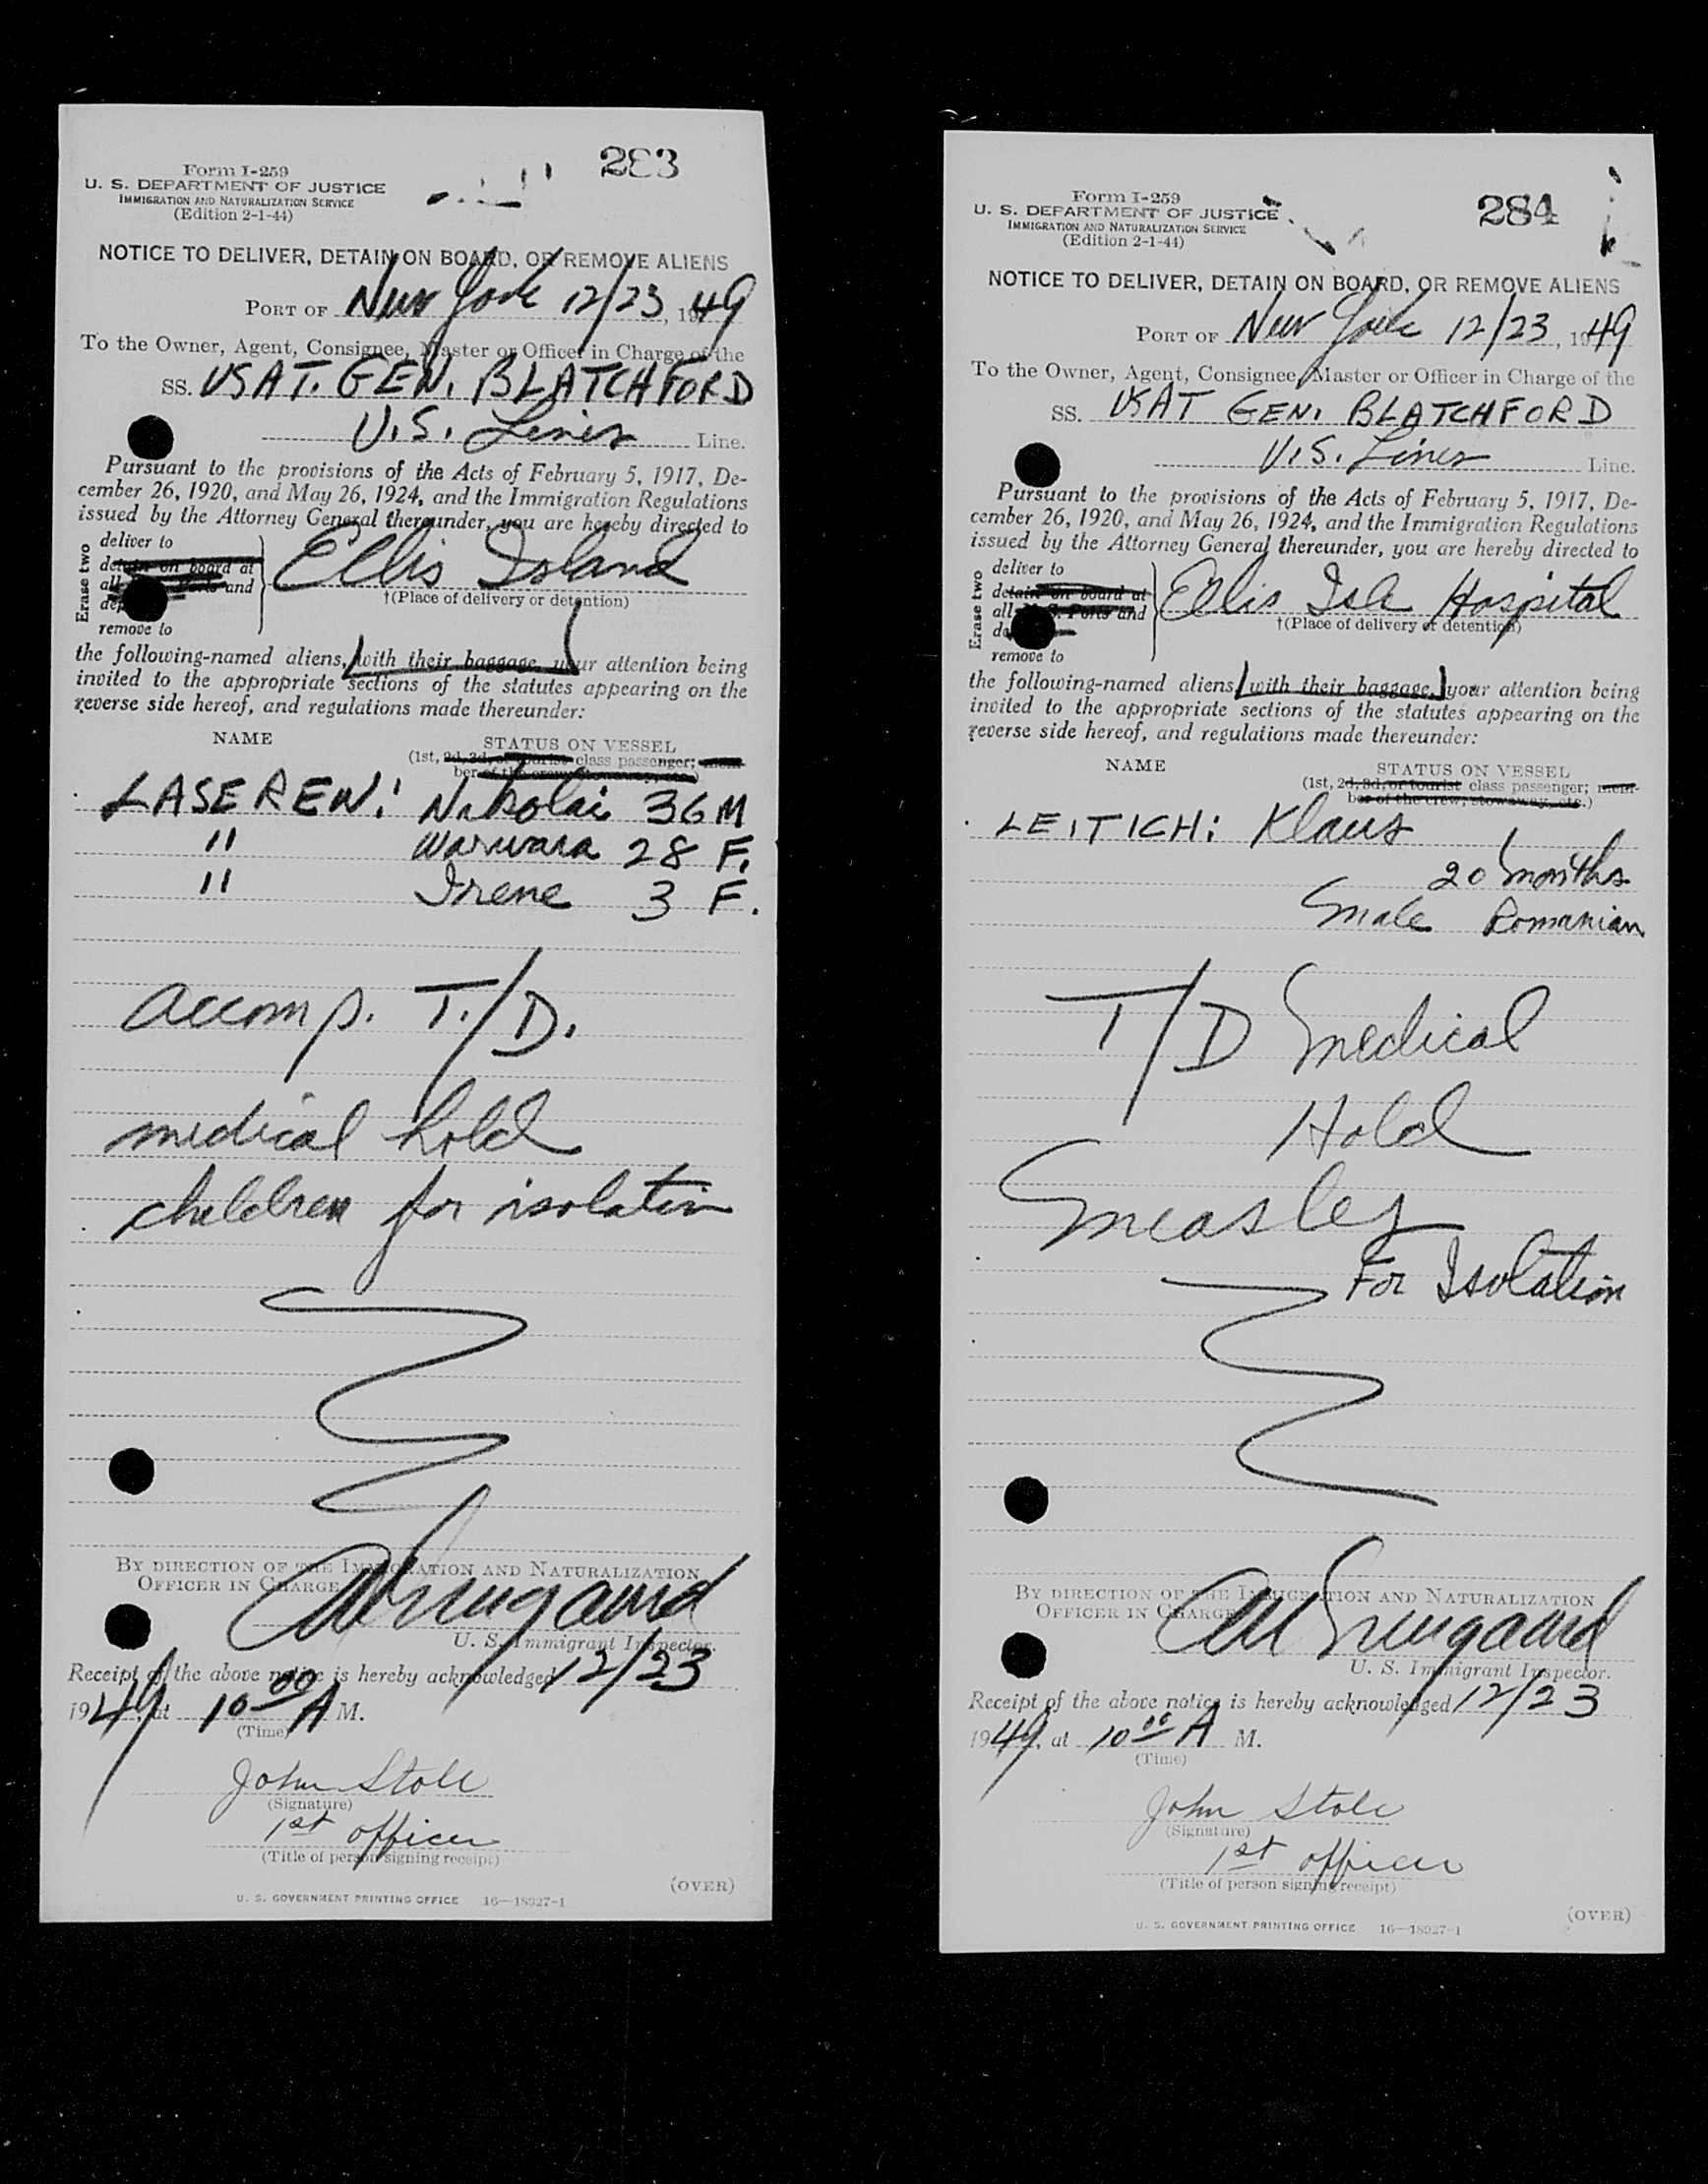 283
Form I-259
U. S. DEPARTMENT OF JUSTICE
IMMIGRATION AND NATURALIZATION SERVICE
(Edition 2-1-44)
NOTICE TO DELIVER, DETAIN ON BOARD, OR REMOVE ALIENS
PORT OF New York 12/23, 1949
To the Owner, Agent, Consignee, Master or Officer in Charge of the
SS. USAT. GEN. BLATCHFORD
U.S. Lines Line.
Pursuant to the provisions of the Acts of February 5, 1917, De-
cember 26, 1920, and May 26, 1924, and the Immigration Regulations
issued by the Attorney General thereunder, you are hereby directed to
Erase two
deliver to
detain on board at
all Ports and
remove to
Ellis Island
†(Place of delivery or detention)
the following-named aliens, with their baggage, your attention being
invited to the appropriate sections of the statutes appearing on the
reverse side hereof, and regulations made thereunder:
NAME STATUS ON VESSEL
(1st, 2d, 3d, or tourist class passenger; mem-
ber of the crew, stowaway, etc.)
LASEREW: Nikolai 36 M
" Warwara 28 F.
" Irene 3 F.
accomp. T./D.
medical hold
children for isolation
BY DIRECTION OF THE IMMIGRATION AND NATURALIZATION
OFFICER IN CHARGE
U. S. Immigrant Inspector.
Receipt of the above notice is hereby acknowledged 12/23
1949, at 10 00 A M.
(Time)
John Stole
(Signature)
1st officer
(Title of person signing receipt)
(OVER)
U. S. GOVERNMENT PRINTING OFFICE 16—18927-1
284
Form I-259
U. S. DEPARTMENT OF JUSTICE
IMMIGRATION AND NATURALIZATION SERVICE
(Edition 2-1-44)
NOTICE TO DELIVER, DETAIN ON BOARD, OR REMOVE ALIENS
PORT OF New York 12/23, 1949
To the Owner, Agent, Consignee, Master or Officer in Charge of the
SS. USAT GEN. BLATCHFORD
U.S. Lines Line.
Pursuant to the provisions of the Acts of February 5, 1917, De-
cember 26, 1920, and May 26, 1924, and the Immigration Regulations
issued by the Attorney General thereunder, you are hereby directed to
Erase two
deliver to
detain on board at
all U.S. Ports and
remove to
Ellis Isle Hospital
†(Place of delivery or detention)
the following-named aliens, with their baggage, your attention being
invited to the appropriate sections of the statutes appearing on the
reverse side hereof, and regulations made thereunder:
NAME STATUS ON VESSEL
(1st, 2d, 3d, or tourist class passenger; mem-
ber of the crew, stowaway, etc.)
LEITICH: Klaus
20 months
male Romanian
T/D medical
Hold
measles
For Isolation
BY DIRECTION OF THE IMMIGRATION AND NATURALIZATION
OFFICER IN CHARGE
U. S. Immigrant Inspector.
Receipt of the above notice is hereby acknowledged 12/23
1949, at 10 00 A M.
(Time)
John Stole
(Signature)
1st officer
(Title of person signing receipt)
(OVER)
U. S. GOVERNMENT PRINTING OFFICE 16—18927-1